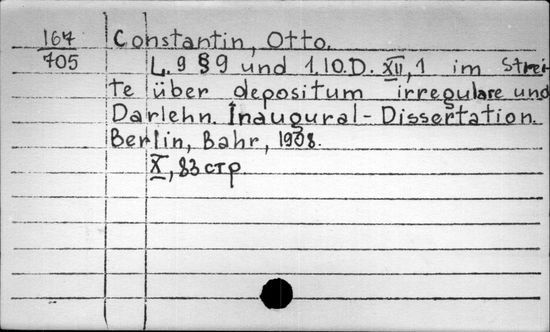 167
705
Constantin, Otto.
L. 9 § 9 und 1.10.D. XII, 1 im Strei-
te über depositum irregulare und
Darlehn. Inaugural-Dissertation.
Berlin, Bahr, 1908.
X, 83 стр.